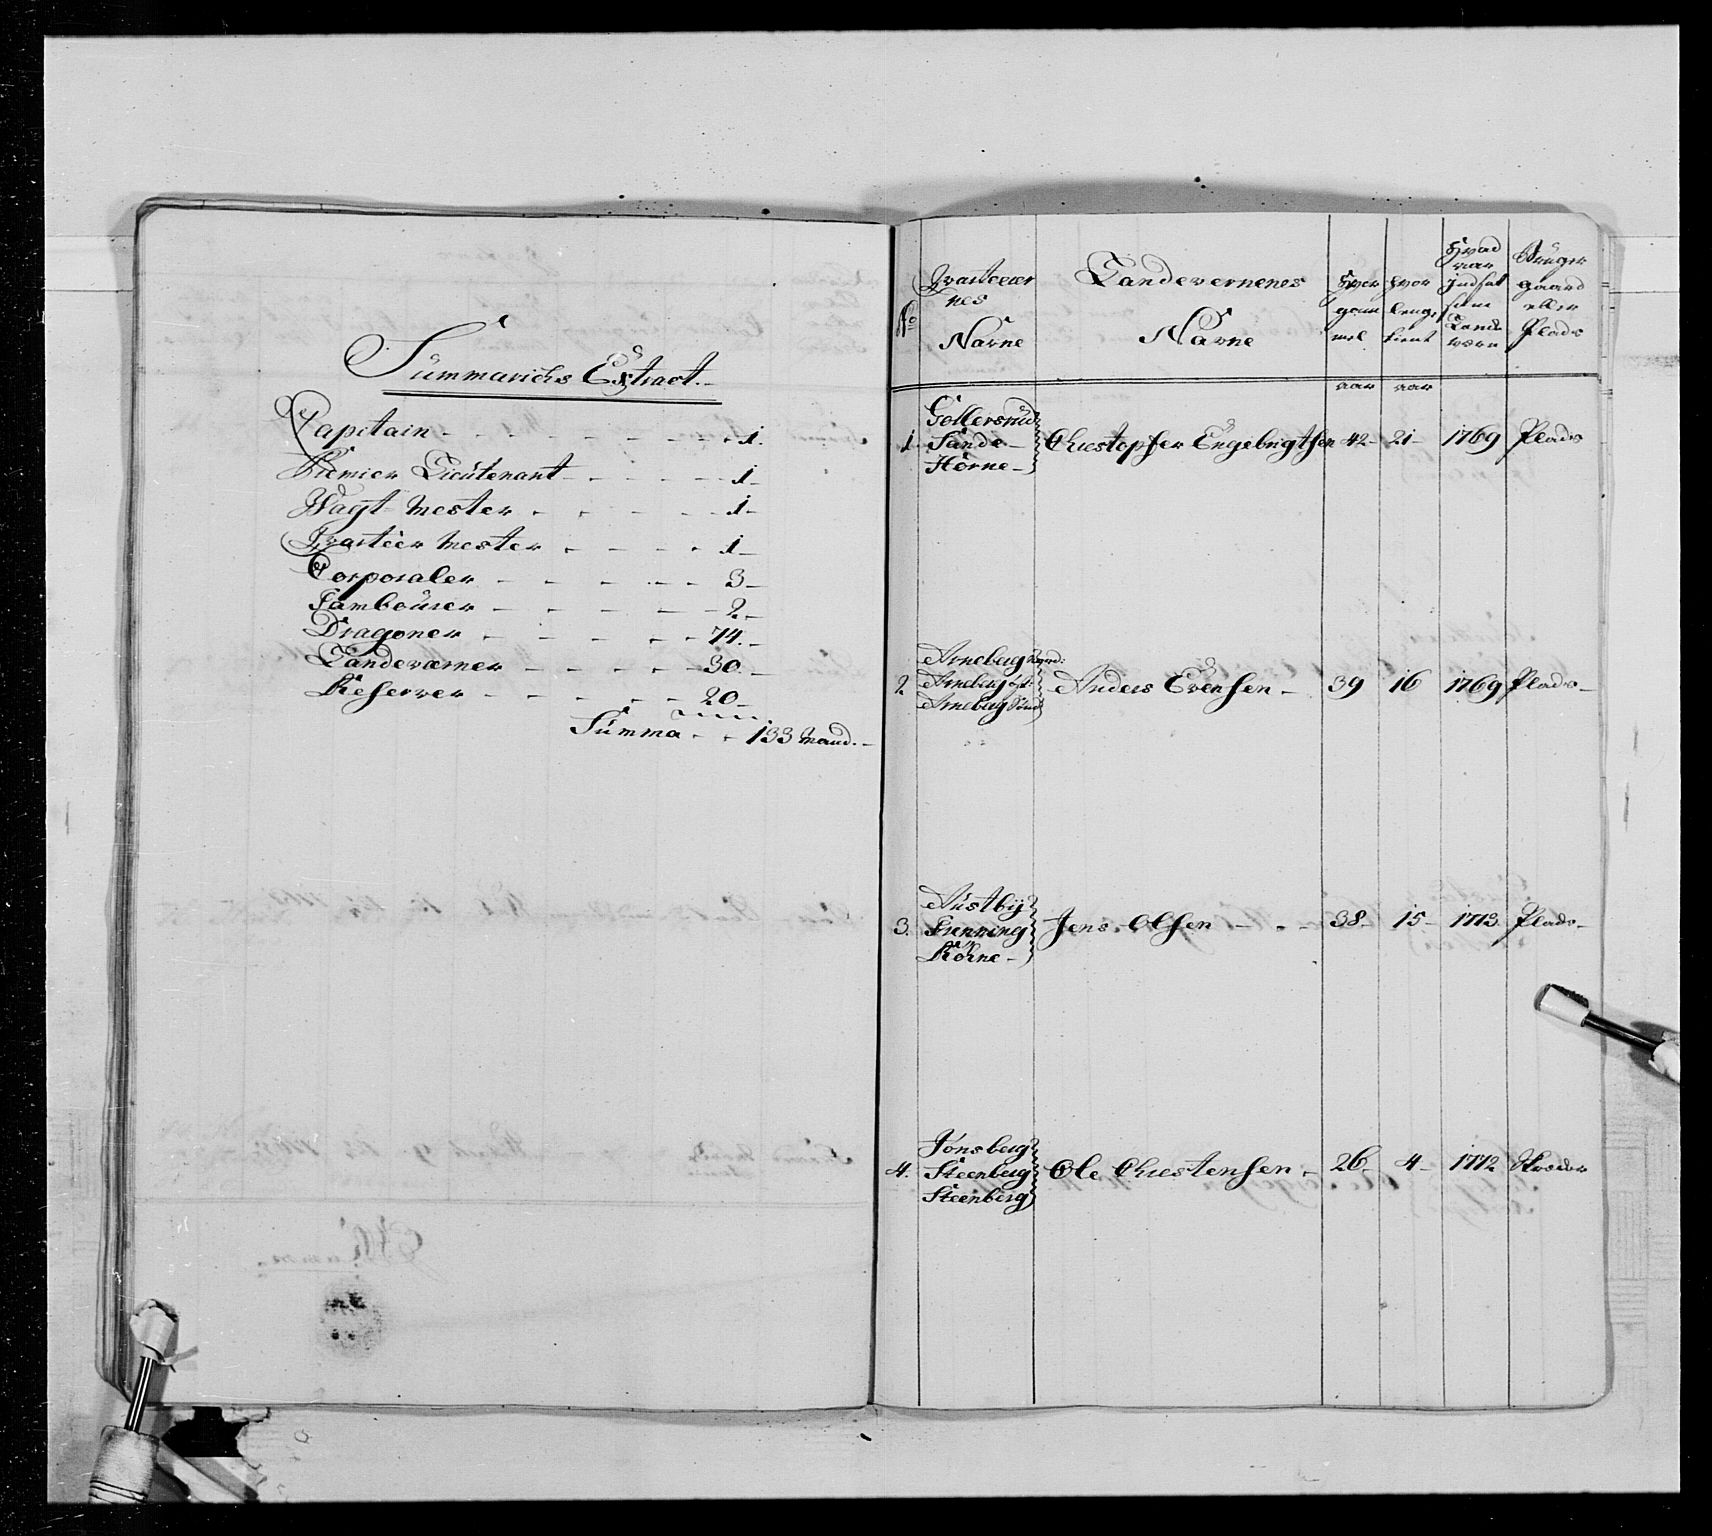 Summarichs Extract.
Capitain - - - - - - - - 1.
Premier Lieutenant - - - - - 1 -
Wagt Mester - - - - - 1 -
Qvarteer Mester - - - - - 1 -
Corporaler - - - - - 3 -
Tambourer - - - - - 2 -
Dragoner - - - - - 74. -
Landeværner - - - - - 30. -
Reserver - - - - - 20 -
Summa - - 133 Mand. -
No
Qvarteer
nes
Navne
Landevernenes
Navne
Hvor
gam
mel
Hvor
leng
tient
Hvad
aar
indsat
som
Land
værn
Bruger
gaard
eller
Plads
aar aar
Gollersrud
1. Sande - Christopher Engebrigtsen 42 - 21 - 1769 Plads
Hörne -
Arneberg Nord:
2 Arneberg öst: Anders Evensen - 39 16 1769 Plads -
Arneberg Sönd
Austbÿ
3. Grenning Jens Olsen - - - 38 - 15 - 1773. Plads -
Kiörne -
Jonsberg
4. Steenberg Ole Christensen - 26 - 4 - 1772
Steenberg